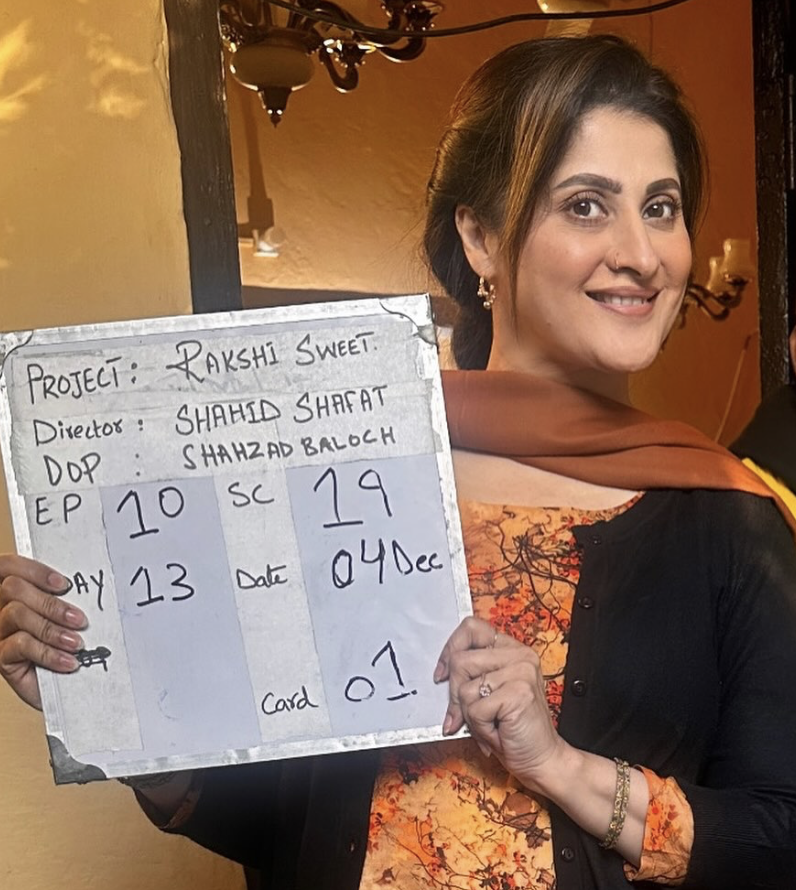 PROJECT: RAKSHI SWEET.
Director: SHAHID SHAFAT
DOP : SHAHZAD BALOCH
EP 10 SC 19
DAY 13 Date 04 Dec
Card 01